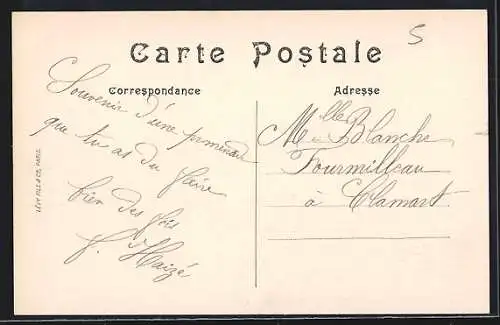 5
Carte Postale
Correspondance
Adresse
Souvenir d'une promenade
que tu as du faire
bien des fois
Mlle Blanche
Fourmilleau
à Clamart
LÉVY FILS & Cie, PARIS